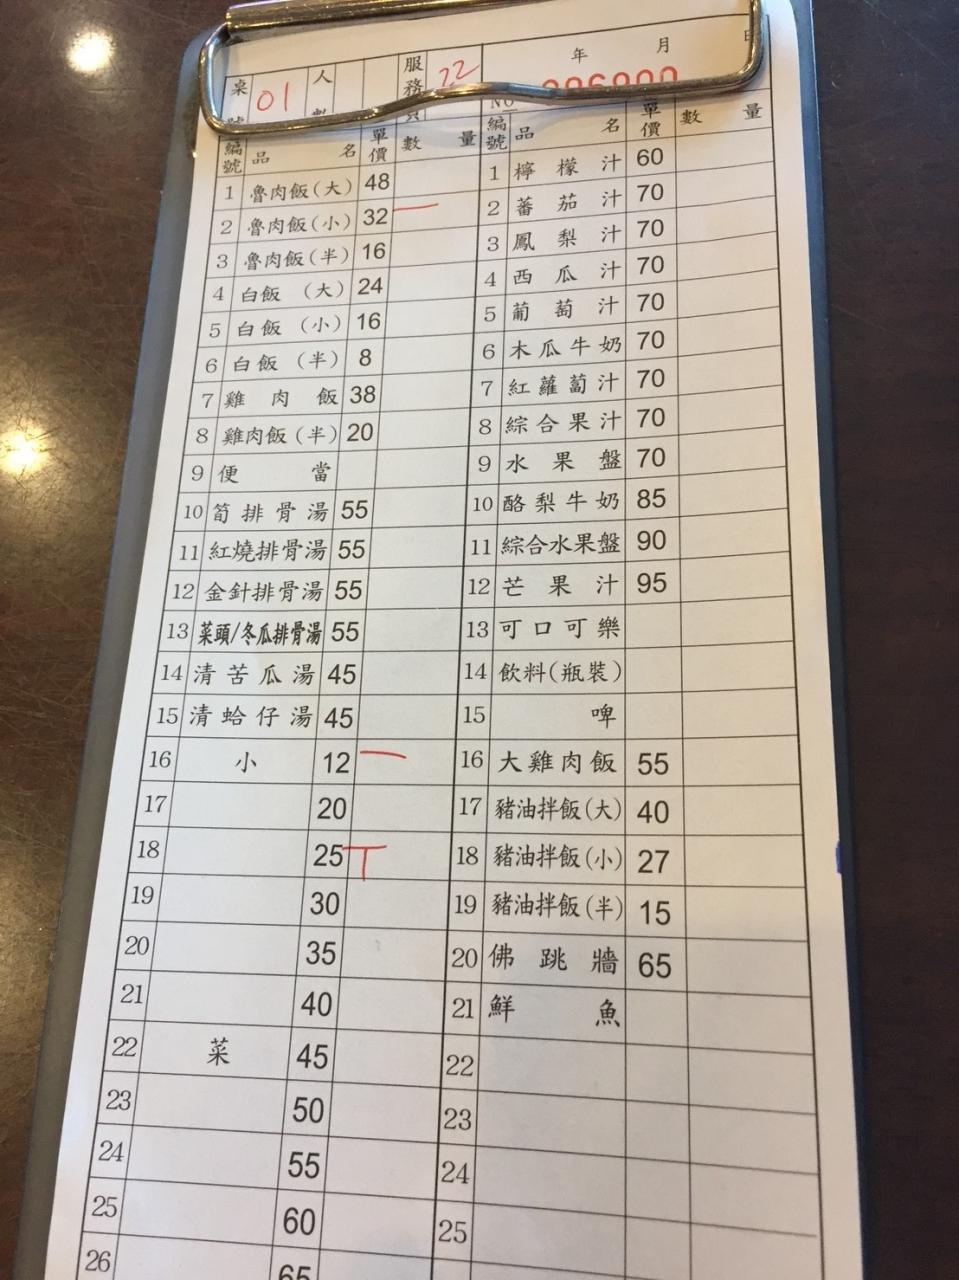 桌 01 人 服務 22 年 月
編號 品 名 單價 數 量
1 魯肉飯(大) 48
2 魯肉飯(小) 32 一
3 魯肉飯(半) 16
4 白飯 (大) 24
5 白飯 (小) 16
6 白飯 (半) 8
7 雞肉飯 38
8 雞肉飯(半) 20
9 便當
10 筍排骨湯 55
11 紅燒排骨湯 55
12 金針排骨湯 55
13 菜頭/冬瓜排骨湯 55
14 清苦瓜湯 45
15 清蛤仔湯 45
16 小 12 一
17 20
18 25 T
19 30
20 35
21 40
22 菜 45
23 50
24 55
25 60
26 65
NO
編號 品 名 單價 數 量
1 檸檬汁 60
2 蕃茄汁 70
3 鳳梨汁 70
4 西瓜汁 70
5 葡萄汁 70
6 木瓜牛奶 70
7 紅蘿蔔汁 70
8 綜合果汁 70
9 水果盤 70
10 酪梨牛奶 85
11 綜合水果盤 90
12 芒果汁 95
13 可口可樂
14 飲料(瓶裝)
15 啤
16 大雞肉飯 55
17 豬油拌飯(大) 40
18 豬油拌飯(小) 27
19 豬油拌飯(半) 15
20 佛跳牆 65
21 鮮魚
22
23
24
25